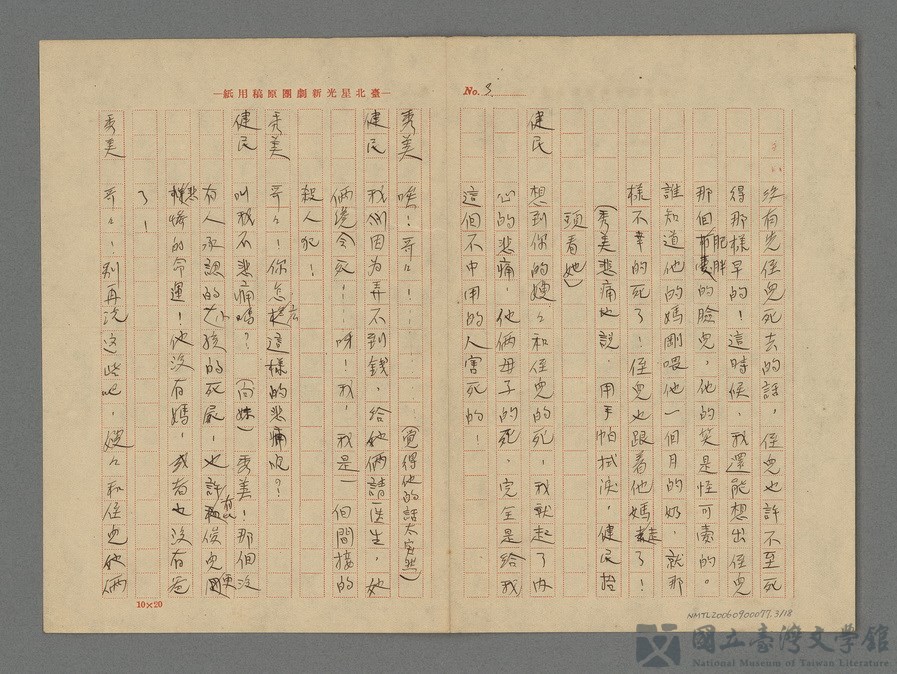 No. 3
—臺北星光新劇團原稿用紙—
終有先侄兒死去的話，侄兒也許不至死
得那樣早的！這時候，我還能想出侄兒
那個肥胖的臉兒，他的笑是怪可愛的。
誰知道他的媽剛喂他一個月的奶，就那
樣不幸的死了！侄兒也跟着他媽走了！
（秀美悲痛地說，用手帕拭淚，健民抬
頭看她）
健民　想到你的嫂々和侄兒的死，我就起了內
心的悲痛，他俩母子的死，完全是給我
這個不中用的人害死的！
秀美　唉！哥々！……（覺得他的話太突然）
健民　我們因为弄不到錢，給他俩請医生，她
俩繞会死！……呀！我，我是一個間接的
殺人犯！
秀美　哥々！你怎么這樣的悲痛呢？
健民　叫我不悲痛嗎？（向妹）秀美！那個沒
有人承認的小孩的死屍，也許有以侄兒更
悲慘的命運！他沒有媽，或者也沒有爸
了！
秀美　哥々！別再說这些吧，嫂々和侄兒他俩
10×20
NMTL20060900077.3/18
國立臺灣文學館
National Museum of Taiwan Literature